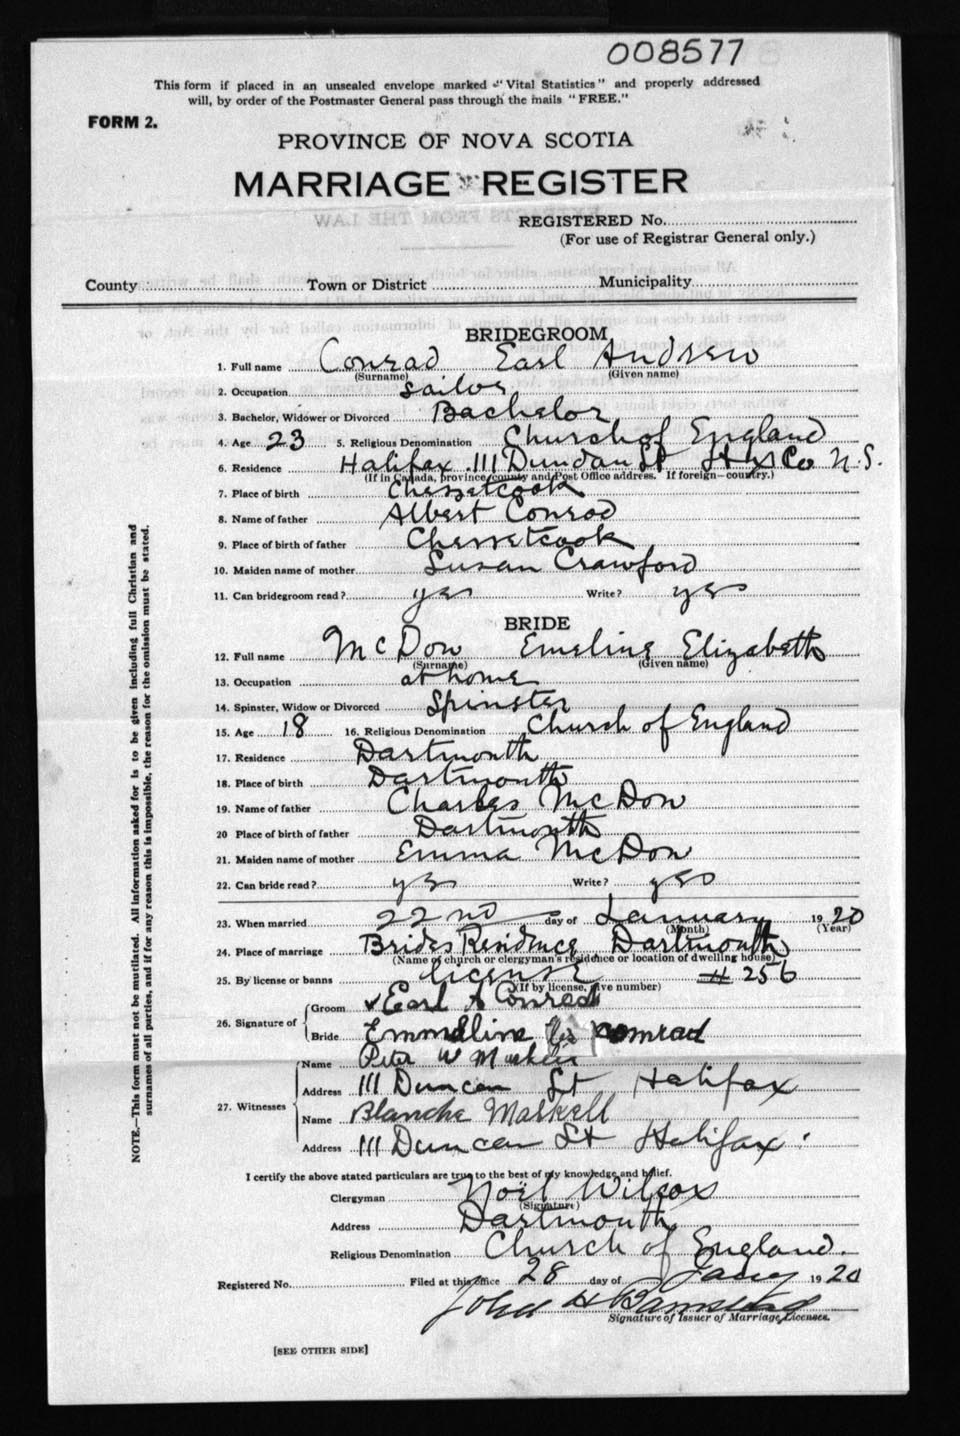 008577
This form if placed in an unsealed envelope marked "Vital Statistics" and properly addressed
will, by order of the Postmaster General pass through the mails "FREE."
FORM 2.
PROVINCE OF NOVA SCOTIA
MARRIAGE REGISTER
REGISTERED No.
(For use of Registrar General only.)
County Town or District Municipality
BRIDEGROOM
1. Full name Conrad Earl Andrew
(Surname) (Given name)
2. Occupation Sailor
3. Bachelor, Widower or Divorced Bachelor
4. Age 23 5. Religious Denomination Church of England
6. Residence Halifax 111 Duncan St Hfx Co N.S.
(If in Canada, province, county and Post Office address. If foreign—country.)
7. Place of birth Chezzetcook
8. Name of father Albert Conrod
9. Place of birth of father Chezzetcook
10. Maiden name of mother Susan Crawford
11. Can bridegroom read? yes Write? yes
BRIDE
12. Full name McDow Emeline Elizabeth
(Surname) (Given name)
13. Occupation at home
14. Spinster, Widow or Divorced Spinster
15. Age 18 16. Religious Denomination Church of England
17. Residence Dartmouth
18. Place of birth Dartmouth
19. Name of father Charles McDow
20 Place of birth of father Dartmouth
21. Maiden name of mother Emma McDow
22. Can bride read? yes Write? yes
23. When married 22nd day of January 1920
(Month) (Year)
24. Place of marriage Brides Residence Dartmouth
(Name of church or clergyman's residence or location of dwelling house)
25. By license or banns license # 256
(If by license, give number)
26. Signature of Groom x Earl A Conrad
Bride Emmeline
27. Witnesses Name Peter W
Address 111 Duncan St Halifax
Name Blanche Maskell
Address 111 Duncan St Halifax.
I certify the above stated particulars are true to the best of my knowledge and belief.
Clergyman Noël Wilcox
(Signature)
Address Dartmouth
Religious Denomination Church of England.
Registered No. Filed at this office 28 day of Jany 1920
John H
Signature of Issuer of Marriage Licenses.
[SEE OTHER SIDE]
NOTE.—This form must not be mutilated. All information asked for is to be given including full Christian and
surnames of all parties, and if for any reason this is impossible, the reason for the omission must be stated.